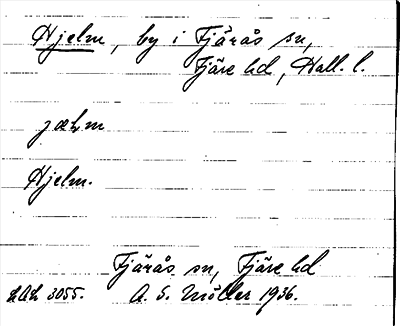 Hjelm, by i Fjärås sn,
Fjäre hd, Hall. l.
jæḷm
Hjelm.
Fjärås sn, Fjäre hd
3055. A. S. Möller 1936.